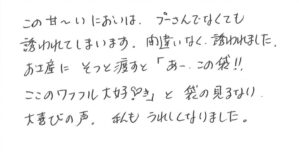 この甘〜いにおいは、プーさんでなくても
誘われてしまいます。間違いなく、誘われました。
お土産に そっと渡すと「あー、この袋!!
ここのワッフル大好き♡」と 袋の見るなり
大喜びの声。私も うれしくなりました。